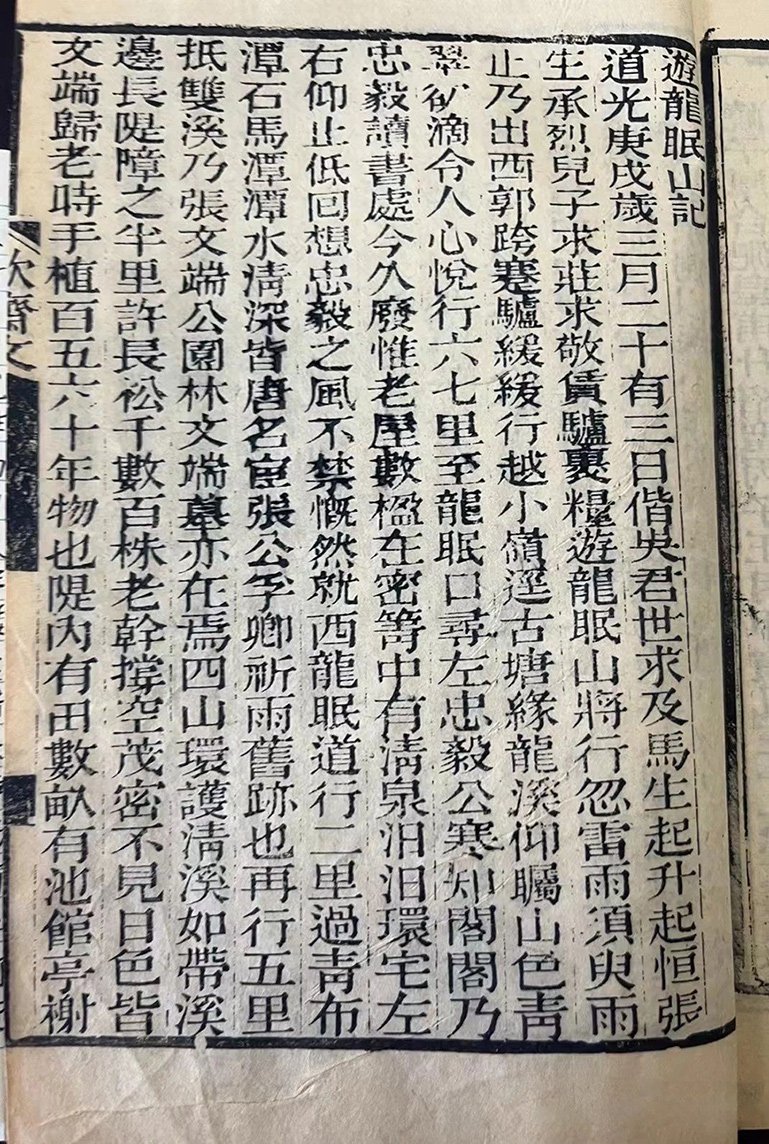 遊龍眠山記
道光庚戌歲三月二十有三日偕吳君世求及馬生起升起恒張
生承烈兒子求莊求敬賃驢裹糧遊龍眠山將行忽雷雨須臾雨
止乃出西郭跨蹇驢緩緩行越小嶺逕古塘緣龍溪仰矚山色靑
翠欲滴令人心悅行六七里至龍眠口尋左忠毅公寒知閣閣乃
忠毅讀書處今久廢惟老屋數楹在密箐中有淸泉汩汩環宅左
右仰止低回想忠毅之風不禁慨然就西龍眠道行二里過靑布
潭石馬潭潭水淸深皆唐名宦張公孚卿祈雨舊跡也再行五里
抵雙溪乃張文端公園林文端墓亦在焉四山環護淸溪如帶溪
邊長隄障之半里許長松千數百株老幹撐空茂密不見日色皆
文端歸老時手植百五六十年物也隄內有田數畝有池館亭榭
齋文